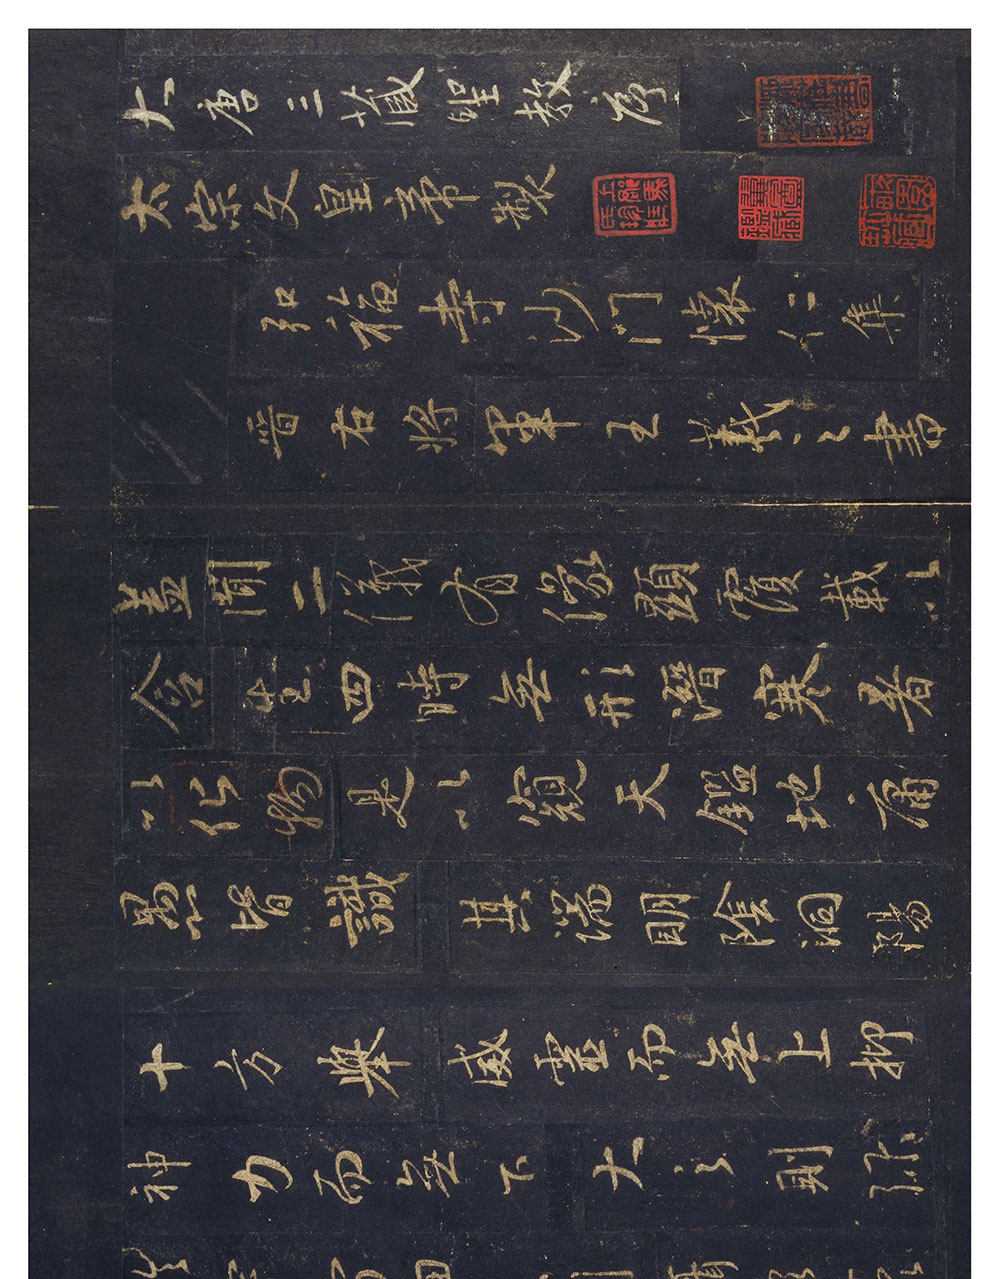 大唐三藏聖教序
太宗文皇帝製
弘福寺沙門懷仁集
晉右將軍王羲之書
蓋聞二儀有像顯覆載以
含生四時無形潛寒暑
以化物是以窺天鑑地庸
愚皆識其端明陰洞陽
十方舉威靈而無上抑
神力而無下大之則彌